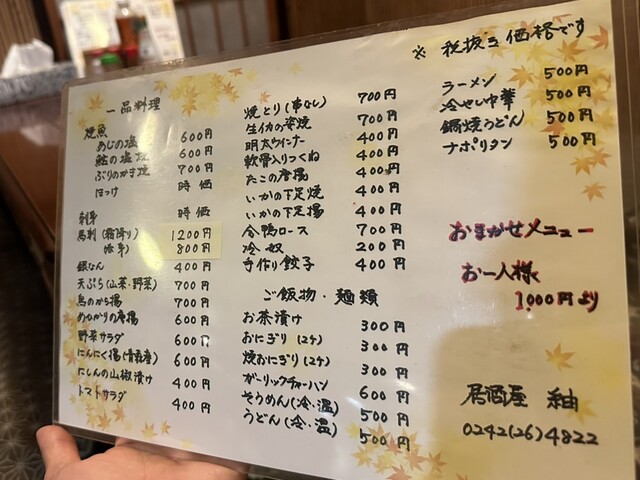 ※ 税抜き価格です
一品料理
焼魚
あじの塩焼 600円
鮭の塩焼 600円
ぶりのかま焼 700円
ほっけ 時価
刺身 時価
馬刺(霜降り) 1200円
(赤身) 800円
銀なん 400円
天ぷら(山菜・野菜) 700円
鳥のから揚 700円
めひかりの唐揚 600円
野菜サラダ 600円
にんにく揚(青森産) 600円
にしんの山椒漬け 400円
トマトサラダ 400円
焼とり(串なし) 700円
生イカの姿焼 700円
明太ウインナー 400円
軟骨入りつくね 400円
たこの唐揚 400円
いかの下足焼 400円
いかの下足揚 400円
合鴨ロース 700円
冷奴 200円
手作り餃子 400円
ご飯物・麺類
お茶漬け 300円
おにぎり(2ケ) 300円
焼おにぎり(2ケ) 300円
ガーリックチャーハン 600円
そうめん(冷・温) 500円
うどん(冷・温) 500円
ラーメン 500円
冷せい中華 500円
鍋焼うどん 500円
ナポリタン 500円
おまかせメニュー
お一人様
1,000円より
居酒屋 紬
0242(26)4822